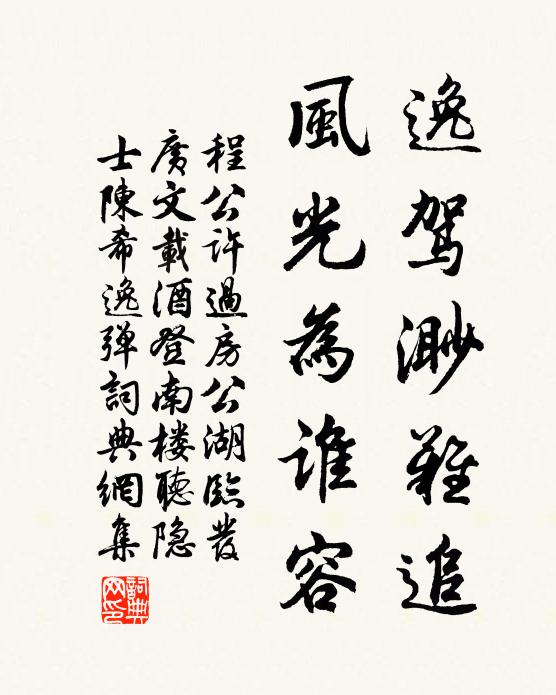 逸驾渺難追
風光為谁容
程公许過房公湖臨發
廣文載酒登南楼聽隐
士陳希逸弹詞典網集
詞典网印